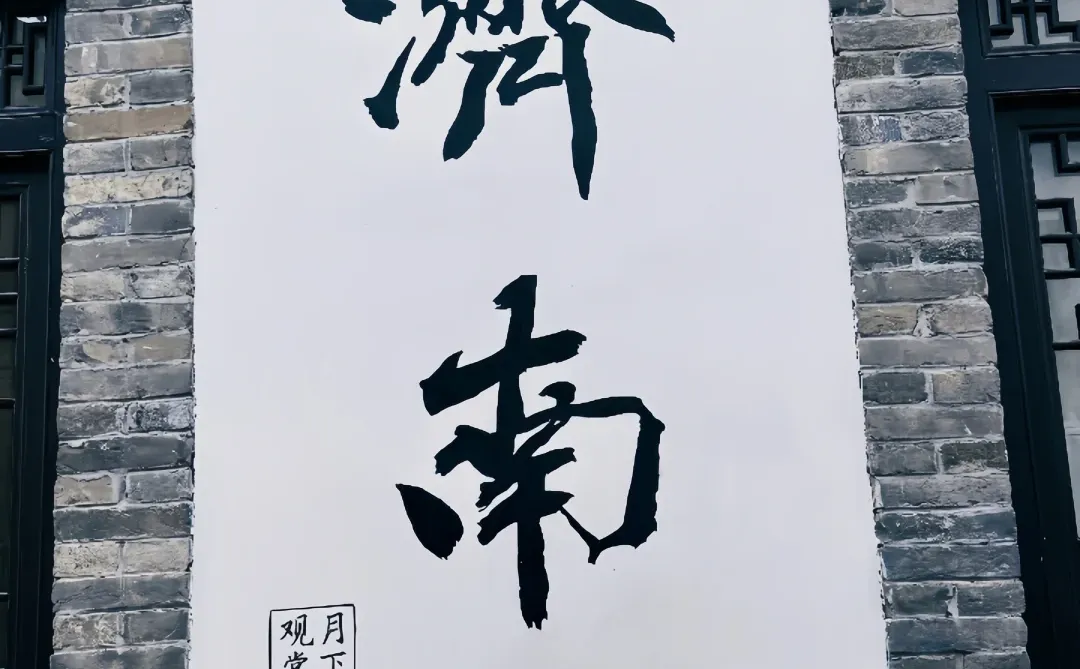 濟
南
月下
观堂